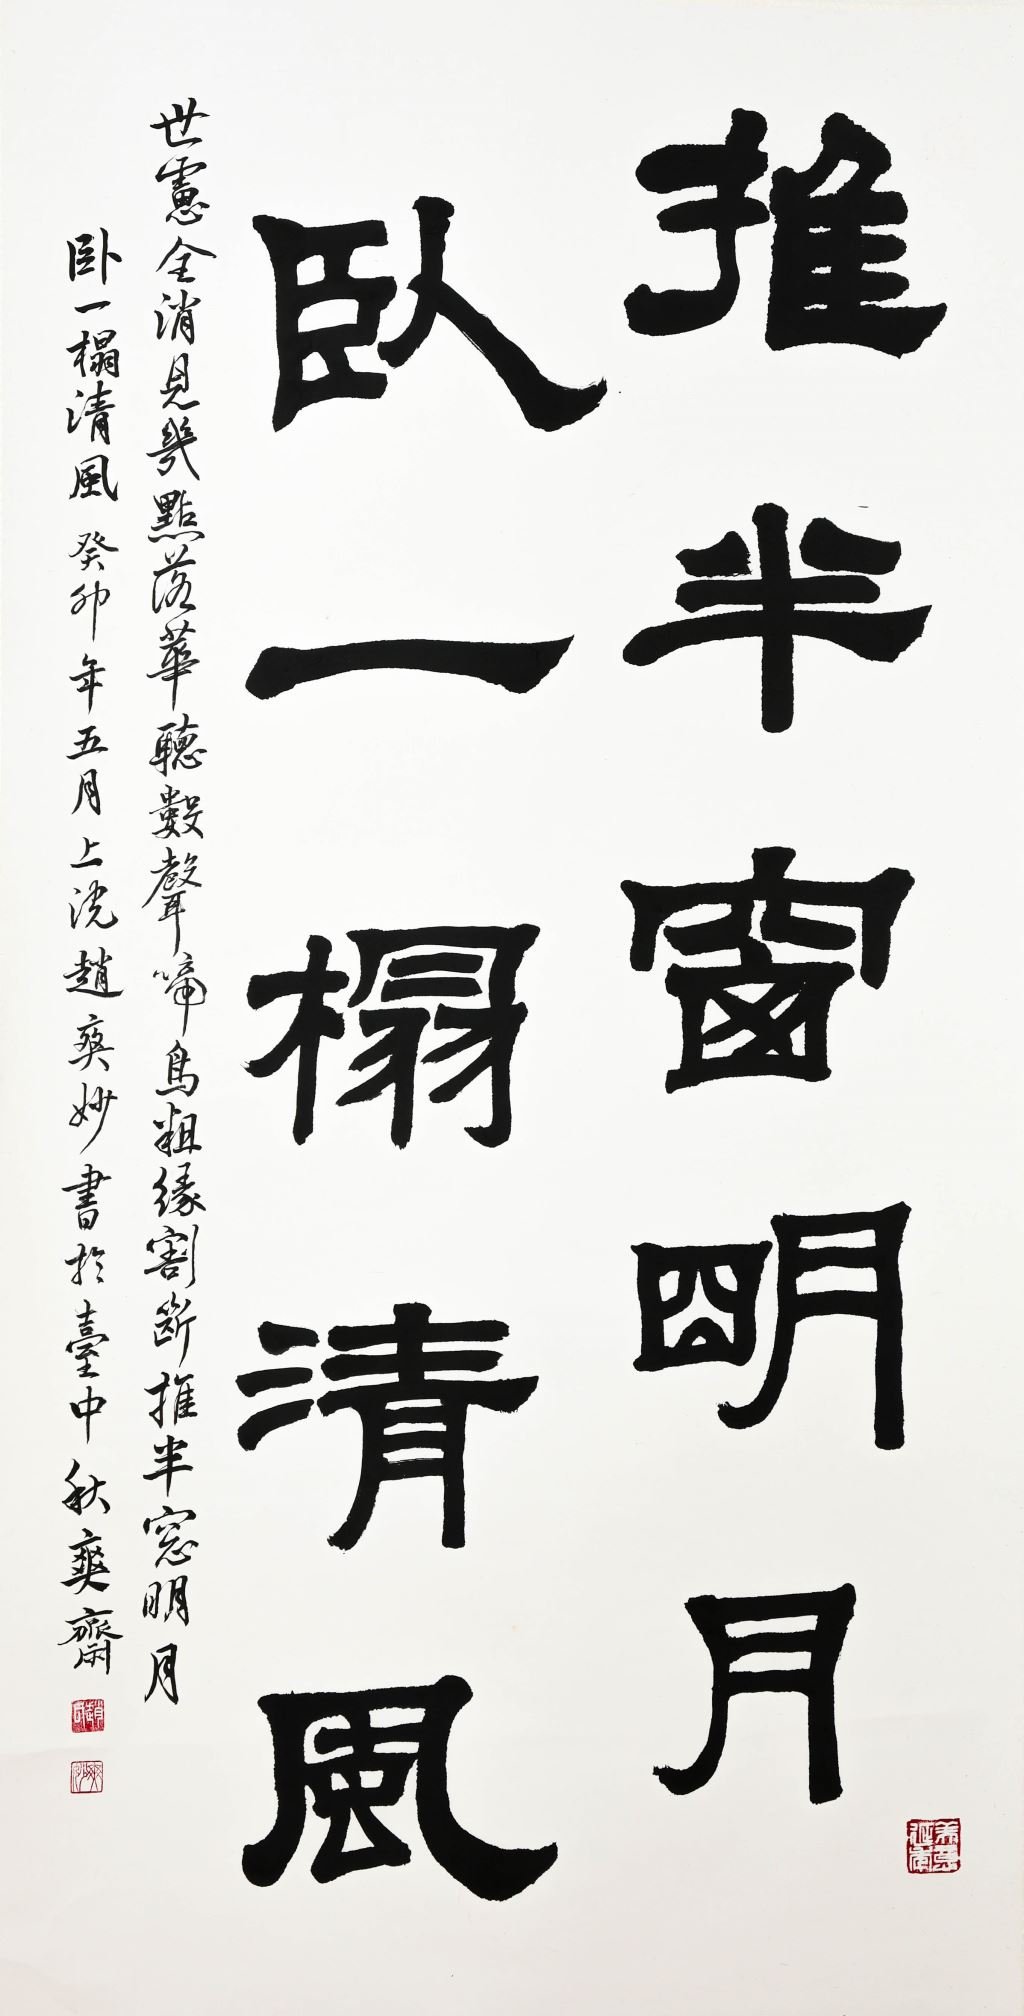 推半窗明月
臥一榻清風
世慮全消見幾點落華聽數聲啼鳥粗緣割斷推半窓明月
臥一榻清風癸卯年五月上浣趙奕妙書於臺中秋爽齋